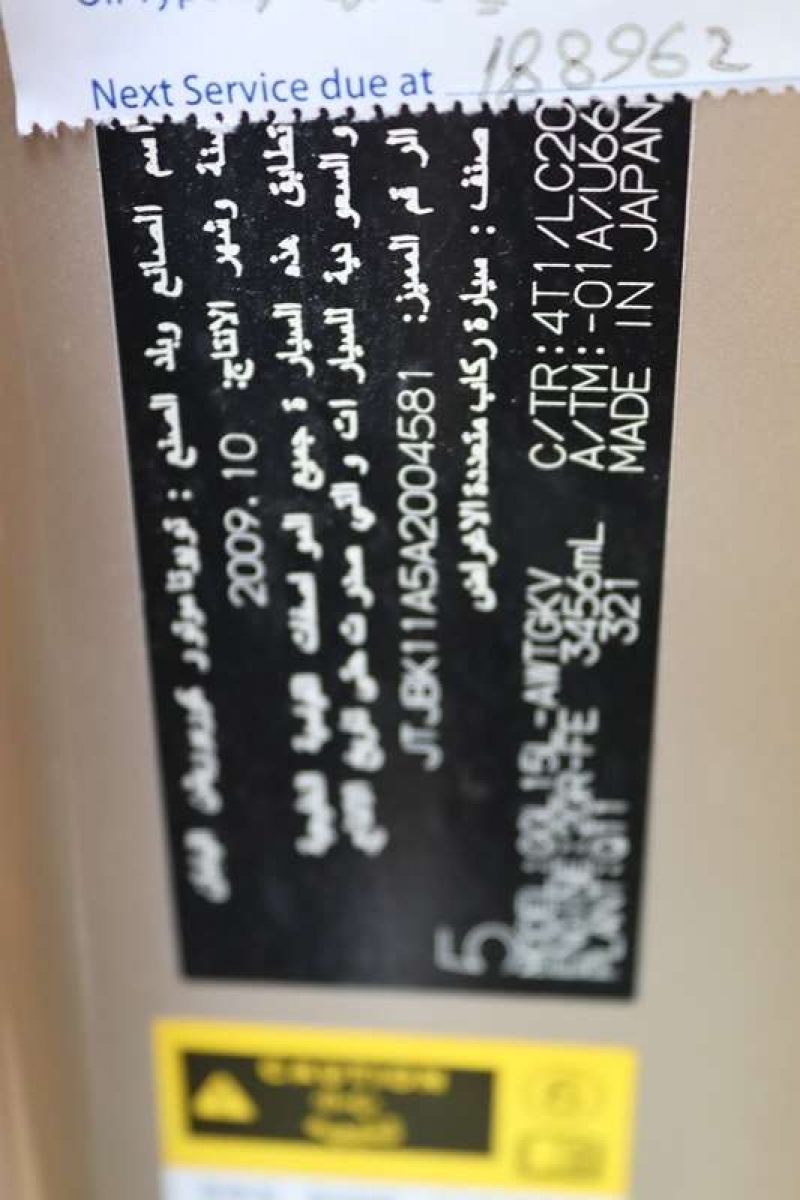 Next Service due at 188962
اسم الصانع وبلد الصنع : تويوتا موتور كوربوريشن اليابان
سنة وشهر الانتاج: 2009.10
تطابق هذه السيارة جميع المواصفات القياسية الخليجية
والسعودية للسيارات والتي صدرت حتى تاريخ الانتاج
الرقم المميز: JTJBK11A5A2004581
صنف : سيارة ركاب متعددة الاغراض
5
MODEL :GGL15L-AWTGKV C/TR:4T1/LC20
3456mL A/TM:-01A/U66
321 MADE IN JAPAN
CAUTION